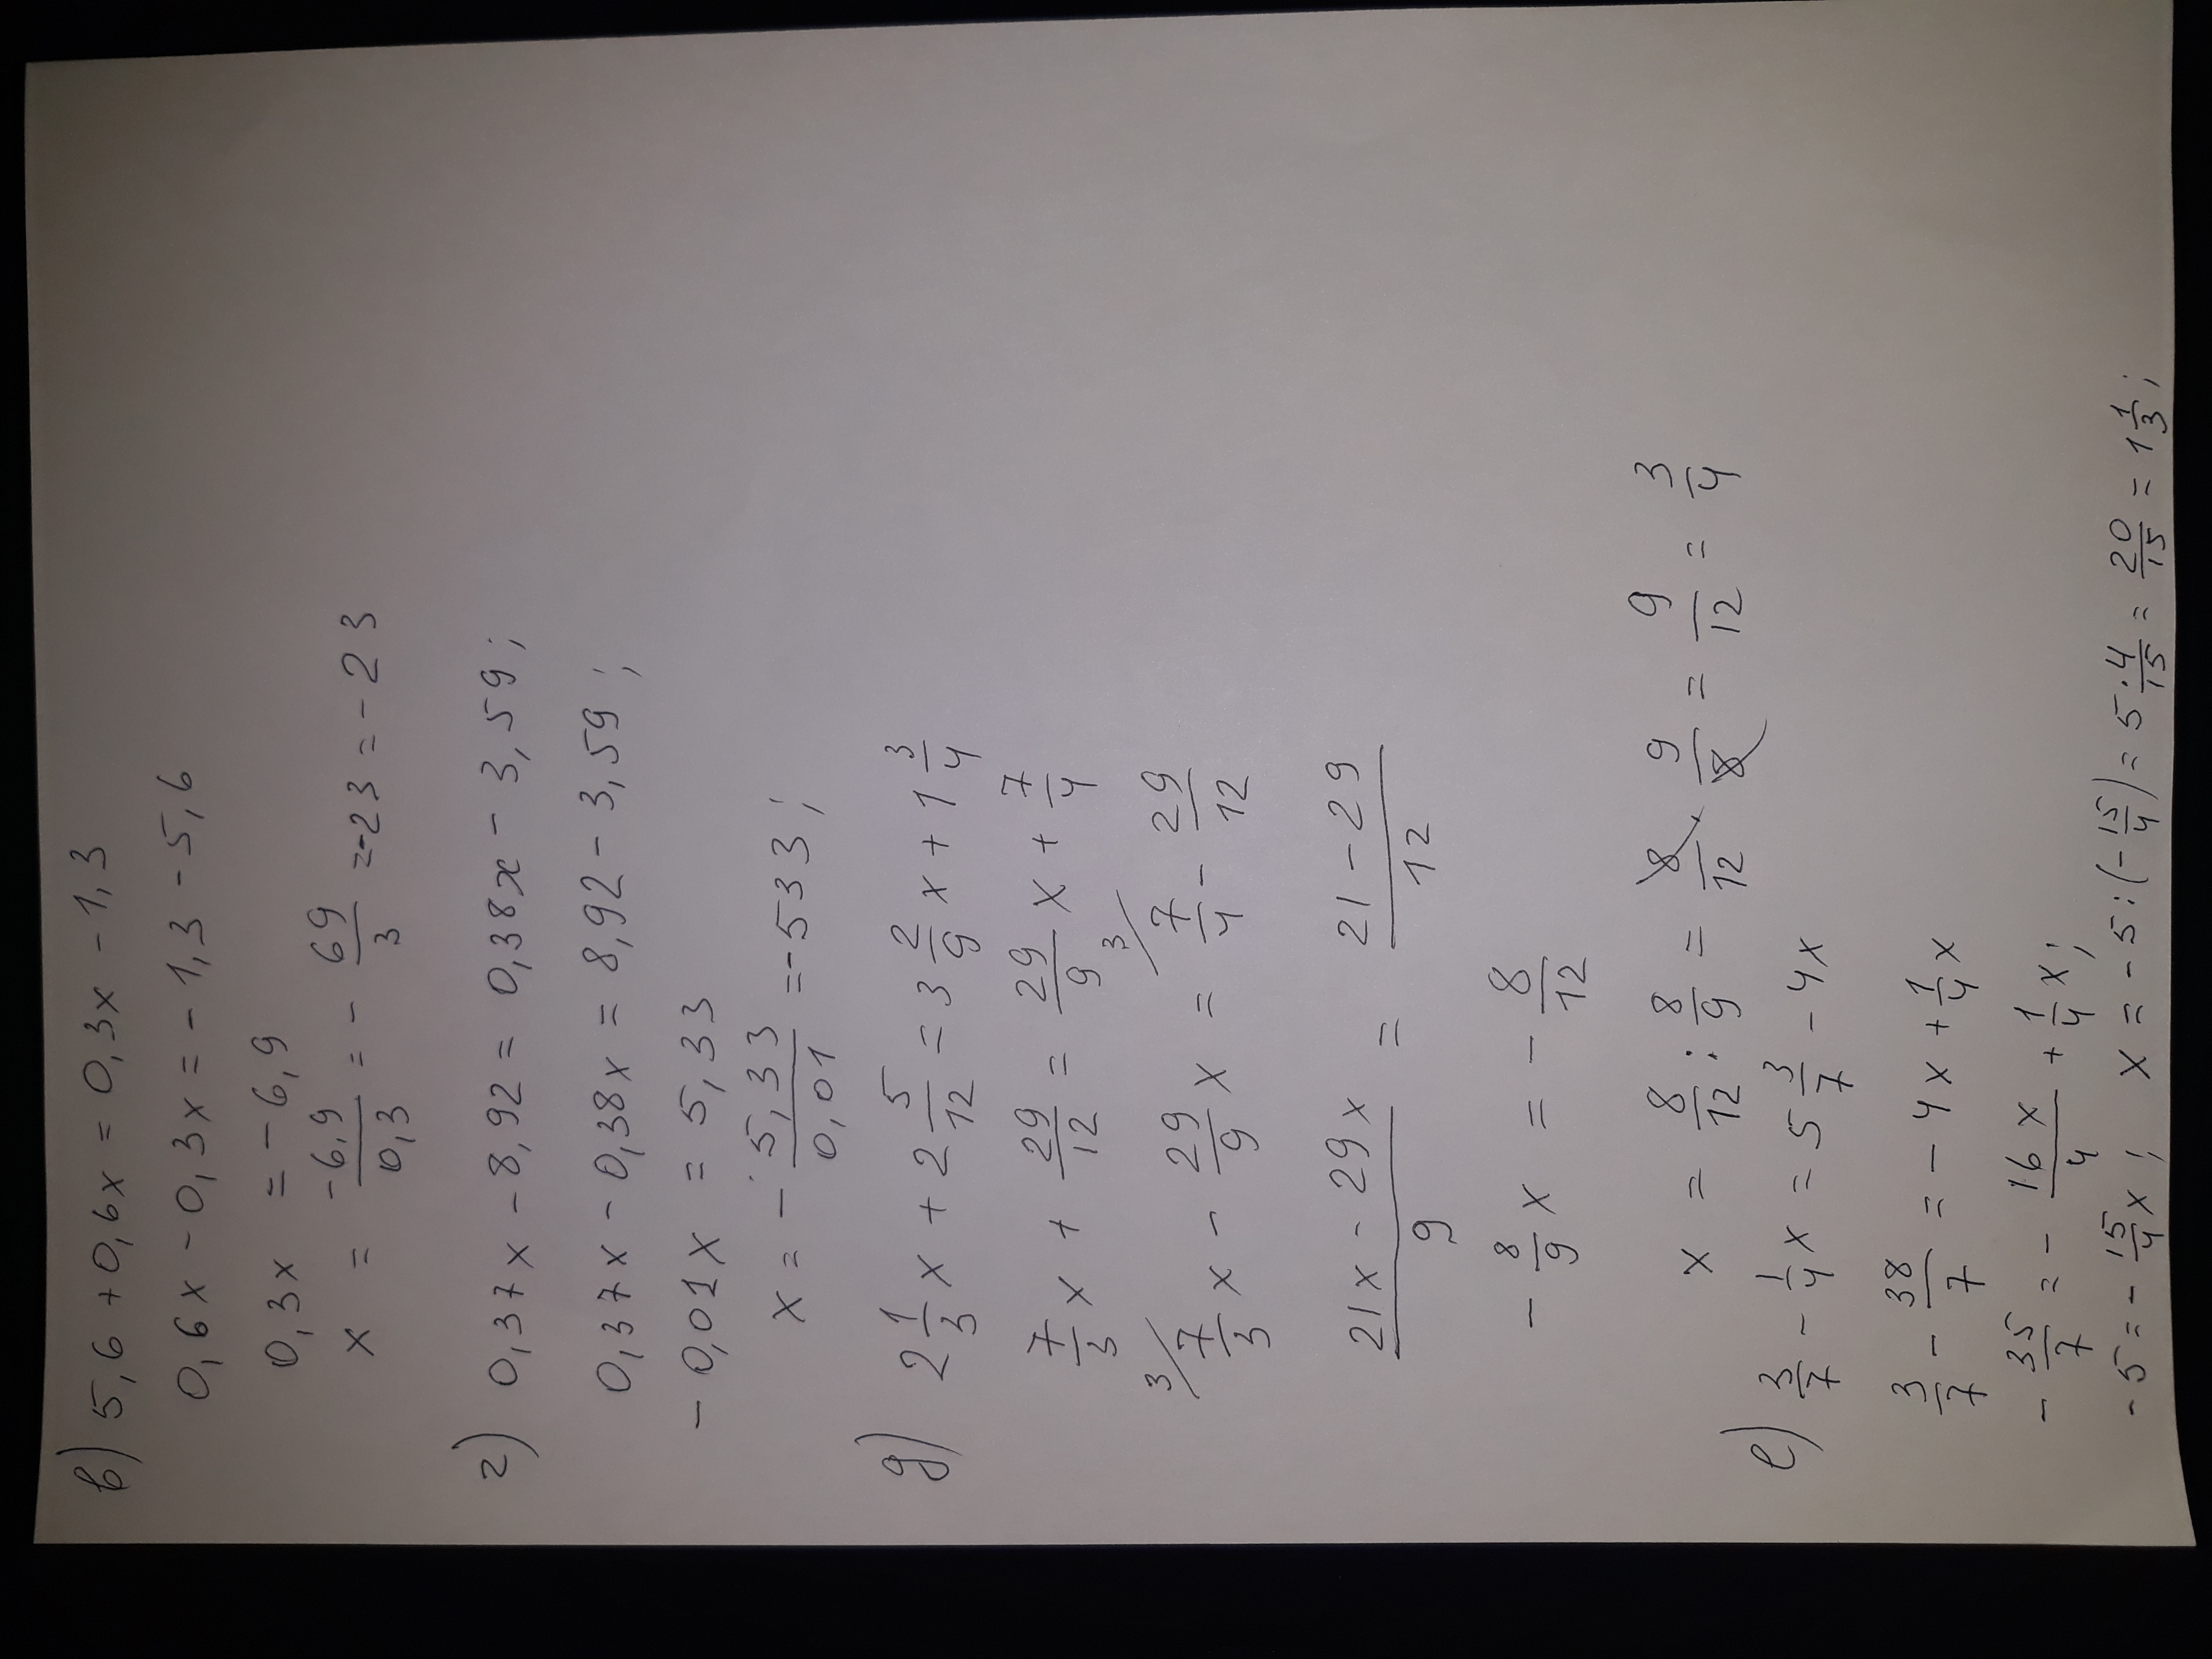 в) 5,6 + 0,6x = 0,3x - 1,3
0,6x - 0,3x = - 1,3 - 5,6
0,3x = - 6,9
x = -6,9/0,3 = - 69/3 = -23 = - 23
г) 0,37x - 8,92 = 0,38x - 3,59;
0,37x - 0,38x = 8,92 - 3,59;
- 0,01x = 5,33
x = - 5,33/0,01 = -533;
д) 2 1/3 x + 2 5/12 = 3 2/9 x + 1 3/4
7/3 x + 29/12 = 29/9 x + 7/4
3/ 7/3 x - 29/9 x = 3/ 7/4 - 29/12
21x - 29x/9 = 21 - 29/12
- 8/9 x = - 8/12
x = 8/12 : 8/9 = 8/12 · 9/8 = 9/12 = 3/4
е) 3/7 - 1/4 x = 5 3/7 - 4x
3/7 - 38/7 = - 4x + 1/4 x
- 35/7 = - 16x/4 + 1/4 x;
- 5 = - 15/4 x; x = - 5 : (- 15/4) = 5 · 4/15 = 20/15 = 1 1/3;